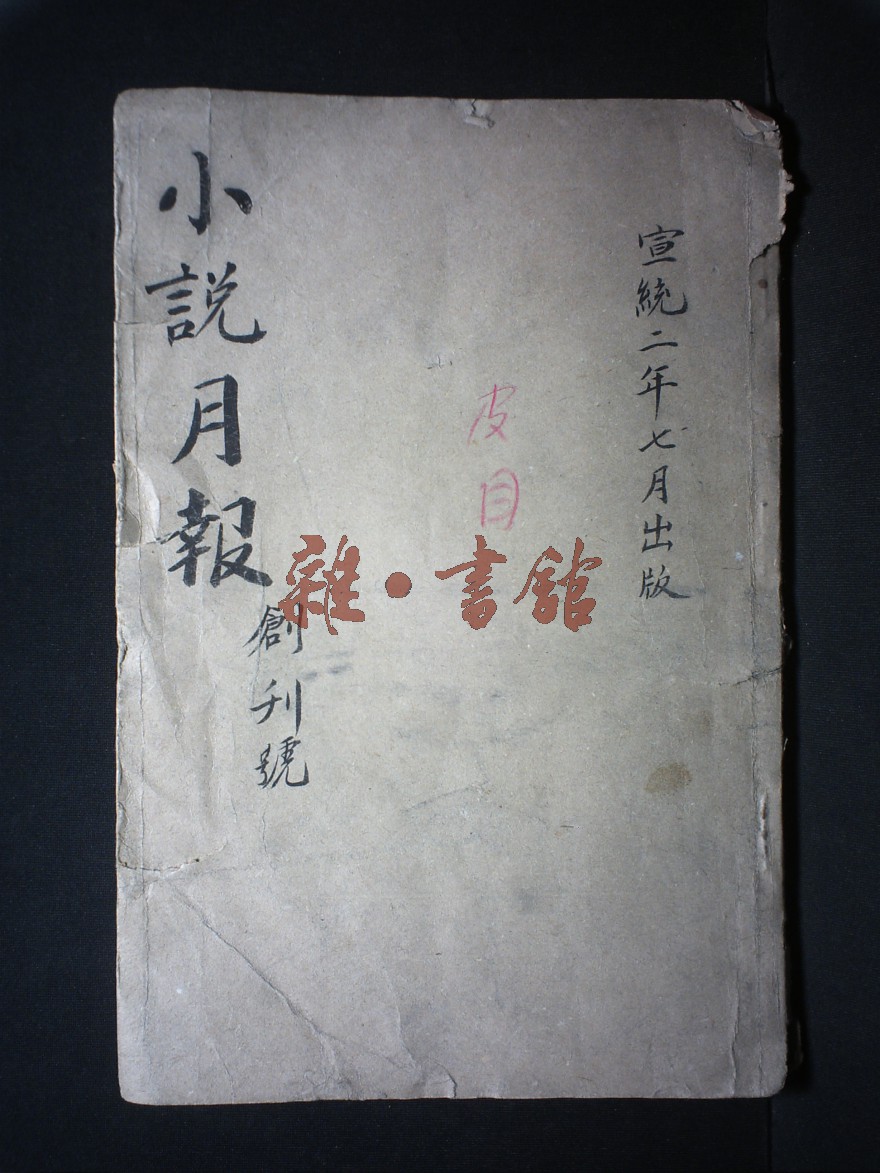 宣統二年七月出版
皮目
小説月報
創刊號
雜·書館